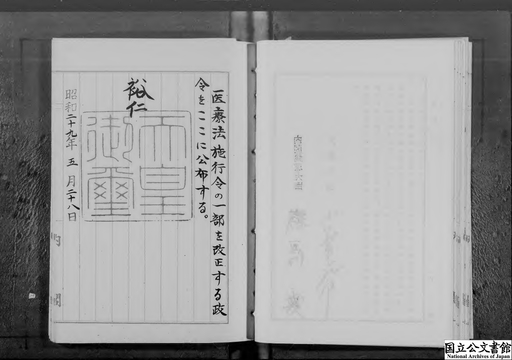 医療法施行令の一部を改正する政
令をここに公布する。
裕仁
天皇
御璽
昭和二十九年五月二十八日
内閣
国立公文書館
National Archives of Japan